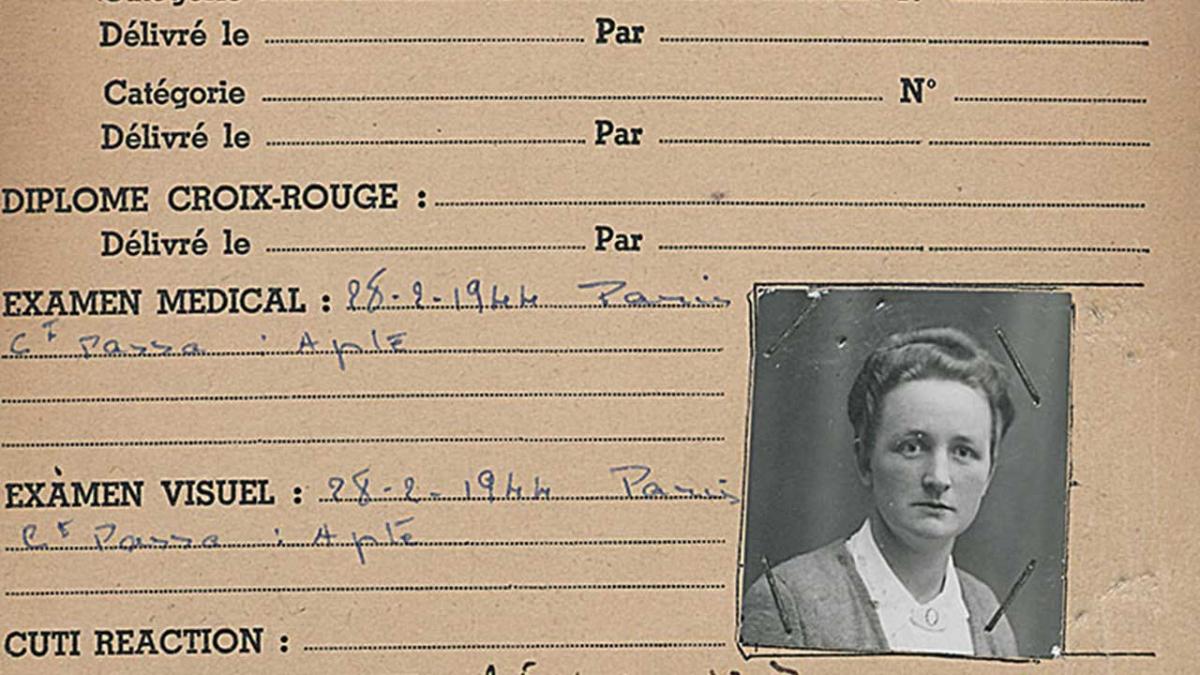 Délivré le Par
Catégorie N°
Délivré le Par
DIPLOME CROIX-ROUGE :
Délivré le Par
EXAMEN MEDICAL : 28-2-1944 Paris
Passa : Apte
EXAMEN VISUEL : 28-2-1944 Paris
Passa : Apte
CUTI REACTION :